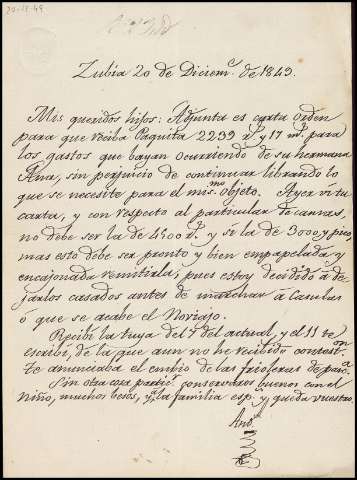 20-12-49
Zubia 20 de Diciem.e de 1849.
Mis queridos hijos: Adjunta es carta orden
para que reciba Paquita 2239 r.s y 17 m.s para
los gastos que bayan ocurriendo de su hermana
Ana, sin perjuicio de continuar librando lo
que se necesite para el mis.mo objeto. Ayer vi tu
carta, y con respecto al particular de
no debe ser la de 4500 r.s y si la de 3000 y pico,
mas esto debe ser pronto y bien empapelada y
encajonada remitirla, pues estoy decidido á de-
jarlos casados antes de marchar á
ó que se acabe el Noviajo.
Recibí la tuya del 4 del actual, y el 11 te
escribí, de la que aun no he recibido contest.on
Te anunciaba el embio de las frioleras de
Sin otra cosa partic.r conservaros buenos con el
Niño, muchos besos, y á la familia esp.s y queda vuestro
And.s